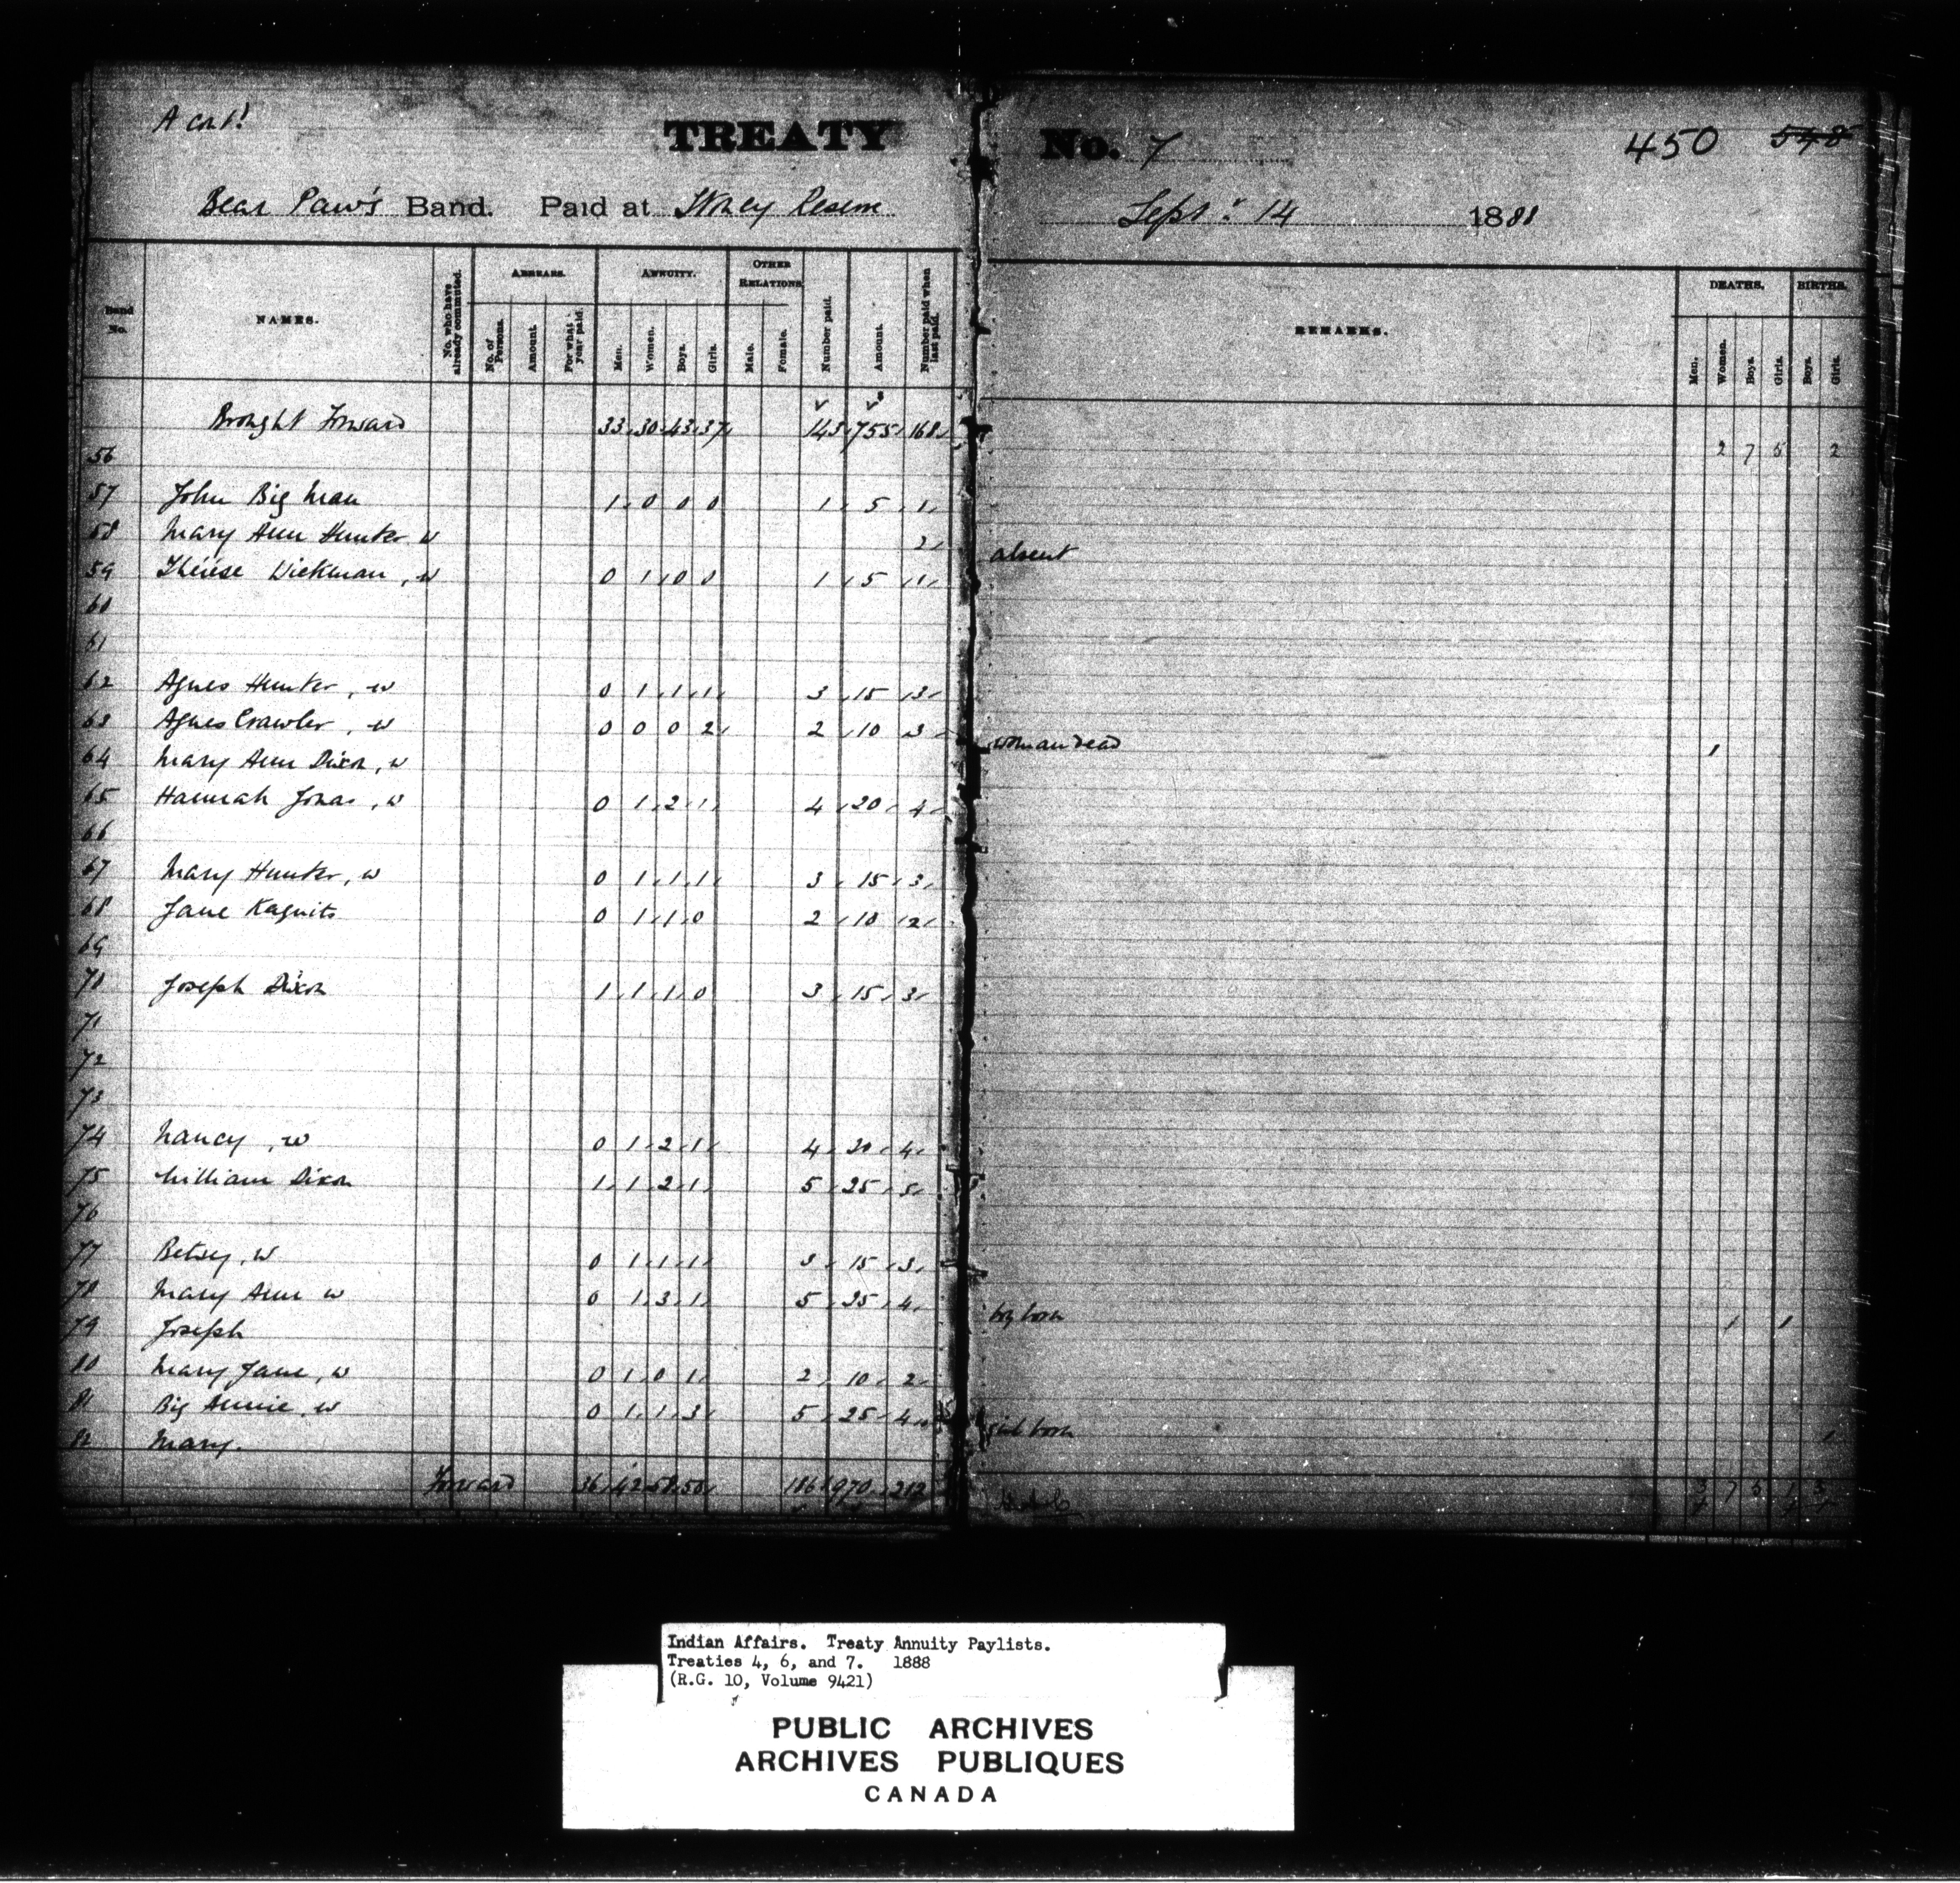 A con't
TREATY No. 7 450 548
Bear Paw's Band. Paid at Stoney Reserve Sept. 14 1888
Band No. NAMES. No. who have already commuted. ARREARS. No. of Persons. Amount. For what year paid. ANNUITY. Men. Women. Boys. Girls. OTHER RELATIONS Male. Female. Number paid. Amount. Number paid when last paid. REMARKS. DEATHS. Men. Women. Boys. Girls. BIRTHS. Boys. Girls.
Brought Forward 33 30 43 37 143 755 168 2 7 5 2
56
57 John Big Man 1 0 0 0 1 5 1
58 Mary Ann Hunter w 2 absent
59 Thérése Dickman, w 0 1 0 0 1 5 1
60
61
62 Agnes Hunter, w 0 1 1 1 3 15 3
63 Agnes Crawler, w 0 0 0 2 2 10 3 woman dead 1
64 Mary Ann Dixon, w
65 Hannah Jonas, w 0 1 2 1 4 20 4
66
67 Mary Hunter, w 0 1 1 1 3 15 3
68 Jane Kaquits 0 1 1 0 2 10 2
69
70 Joseph Dixon 1 1 1 0 3 15 3
71
72
73
74 Nancy, w 0 1 2 1 4 20 4
75 William Dixon 1 1 2 1 5 25 5
76
77 Betsey, w 0 1 1 1 3 15 3
78 Mary Ann w 0 1 3 1 5 25 4 boy born 1 1
79 Joseph
80 Mary Jane, w 0 1 0 1 2 10 2
81 Big Annie, w 0 1 1 3 5 25 4 girl born 1
82 Mary.
Forward 36 42 58 50 186 970 212 3 7 5 1 3
Indian Affairs. Treaty Annuity Paylists.
Treaties 4, 6, and 7. 1888
(R.G. 10, Volume 9421)
PUBLIC ARCHIVES
ARCHIVES PUBLIQUES
CANADA